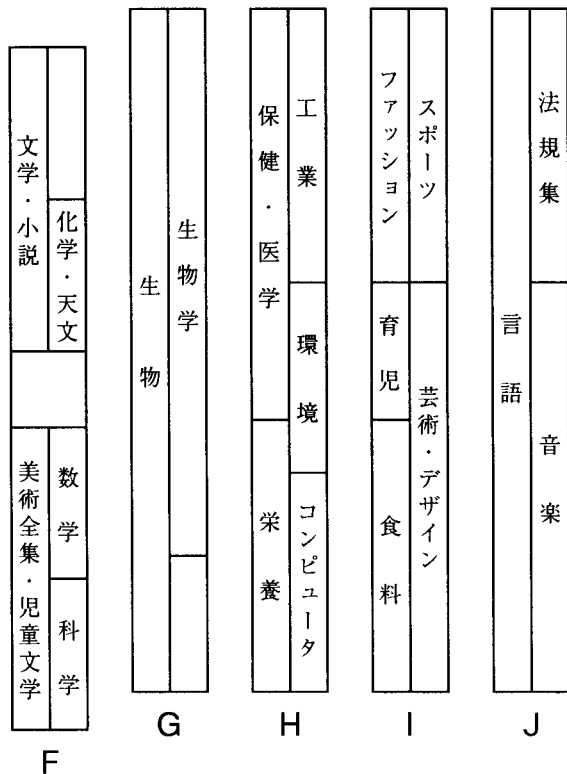 文学・小説
化学・天文
美術全集・児童文学
数学
科学
F
生物
生物学
G
保健・医学
工業
環境
栄養
コンピュータ
H
ファッション
スポーツ
育児
芸術・デザイン
食料
I
言語
法規集
音楽
J